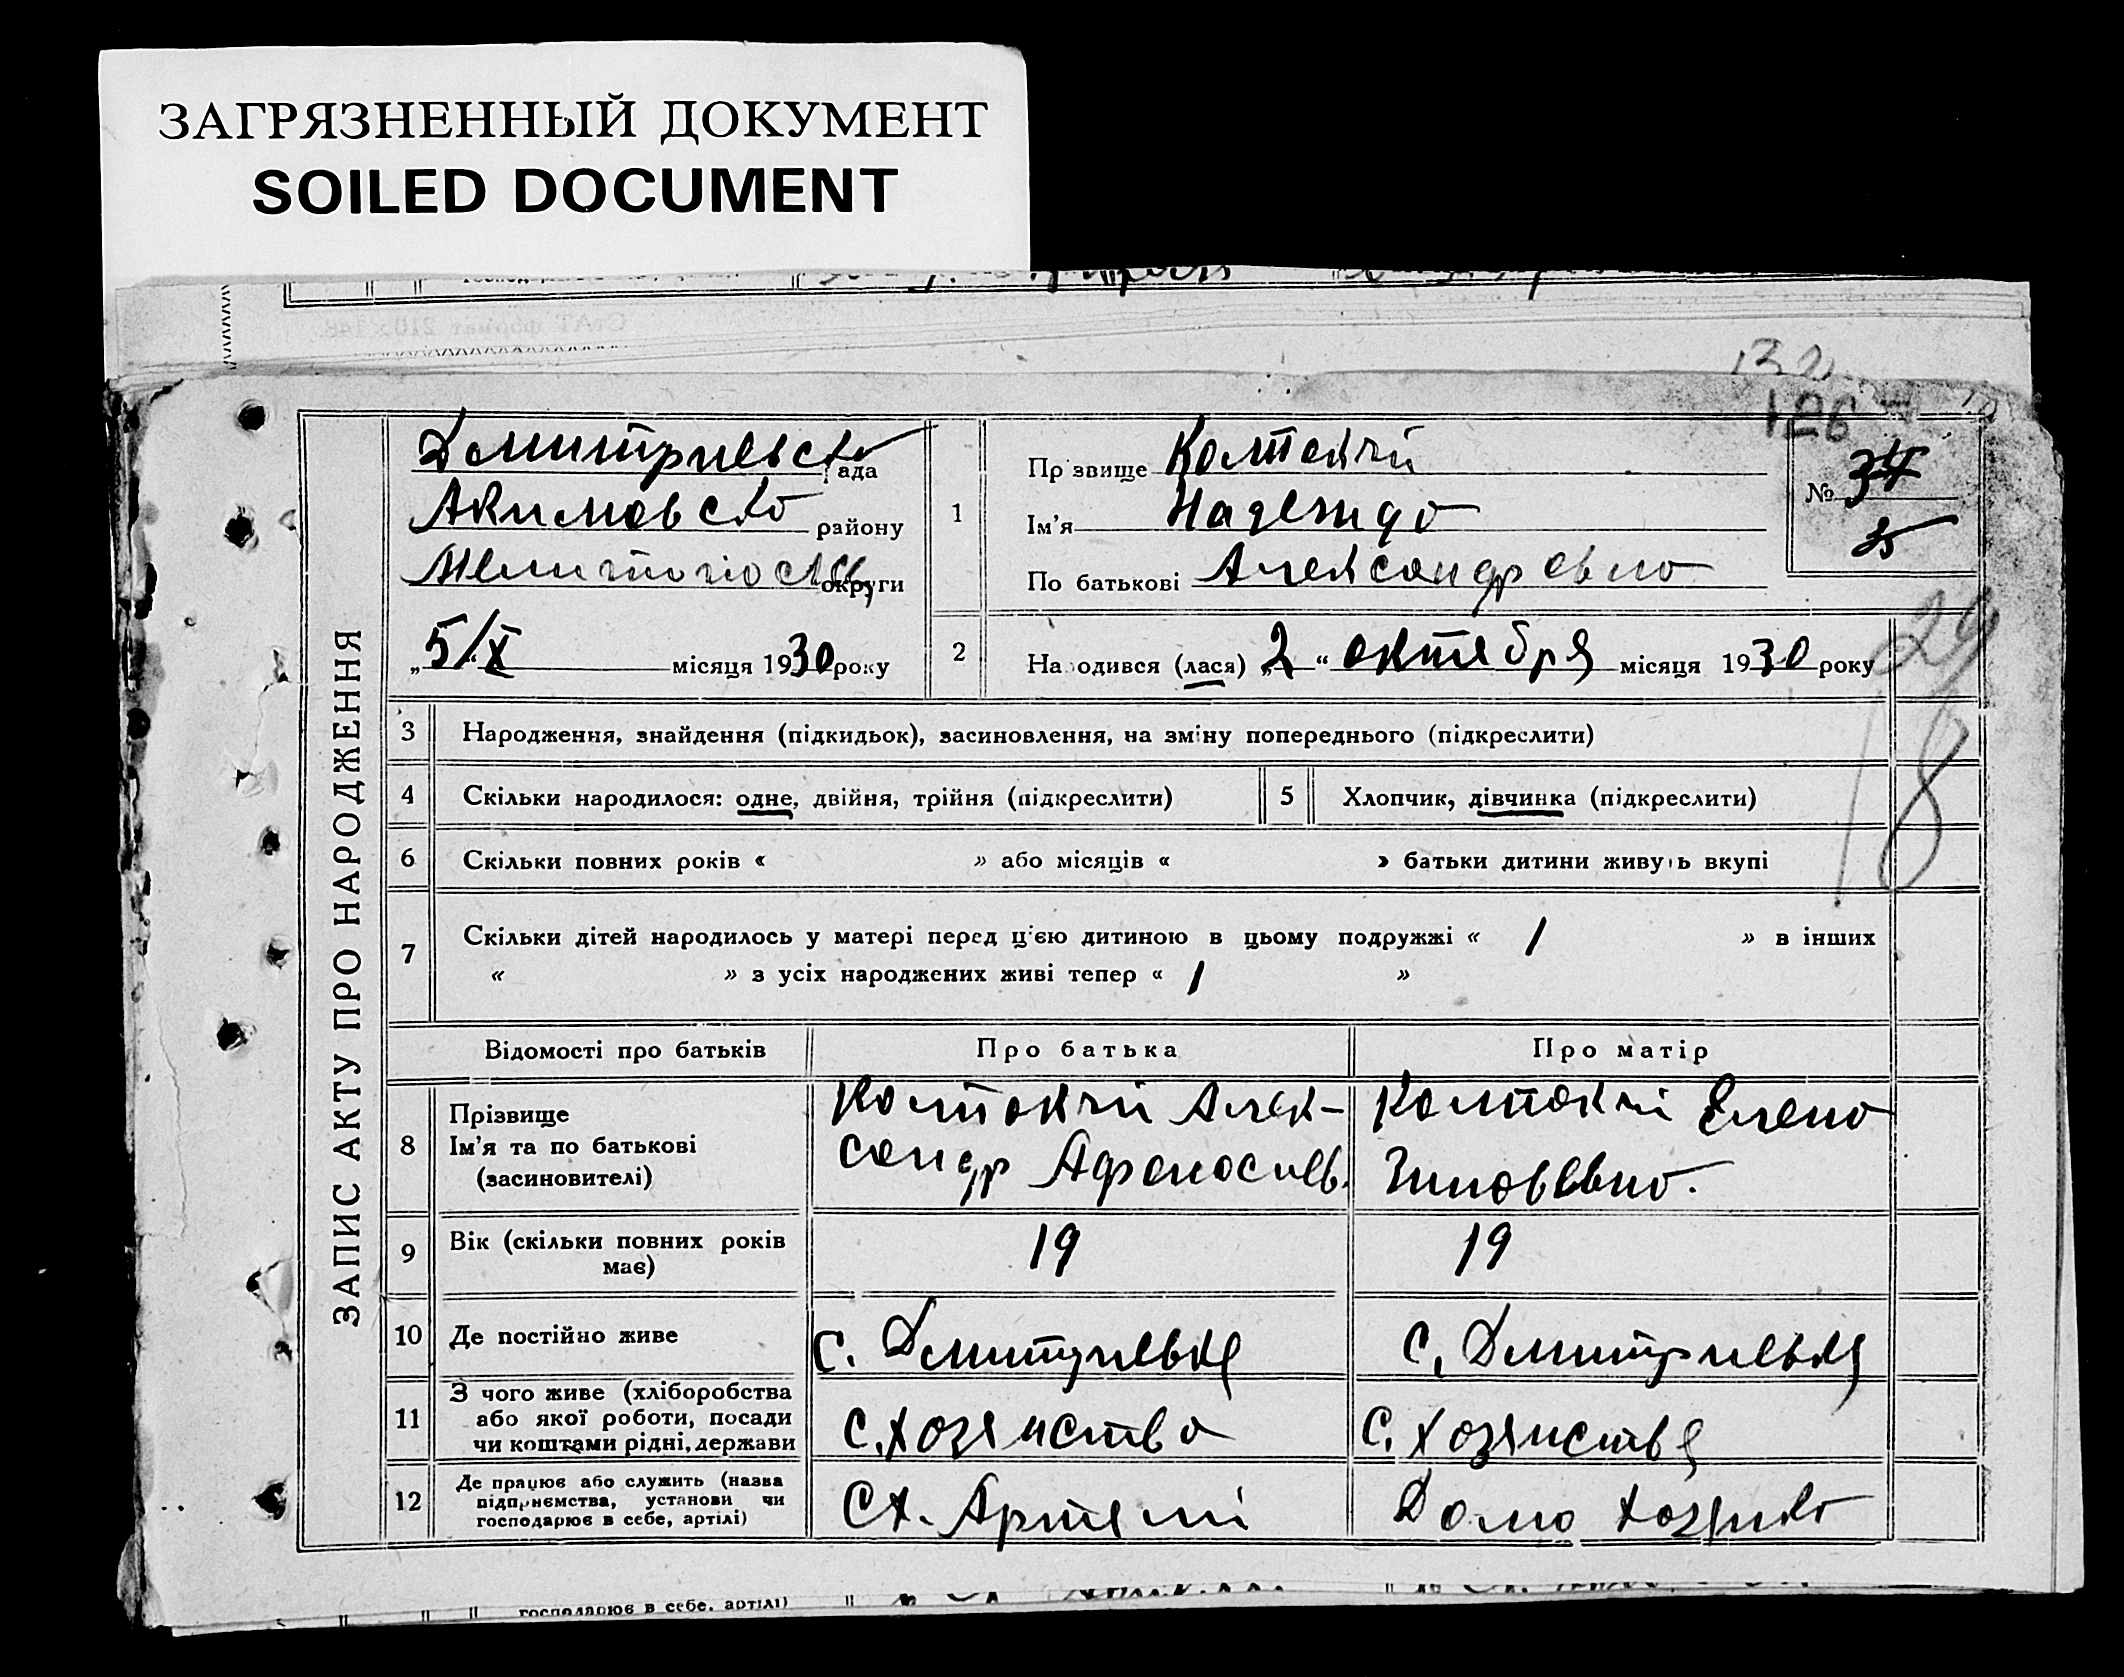 ЗАГРЯЗНЕННЫЙ ДОКУМЕНТ
SOILED DOCUMENT
132
126
ЗАПИС АКТУ ПРО НАРОДЖЕННЯ
Дмитриевско рада
Акимовско району
округи
„5/X“ місяця 1930 року
1
Прізвище Колтакчи
Ім'я Надежда
По батькові Александровна
№ 34
35
29
18
2 Народився (лася) „2“ октября місяця 1930 року
3 Народження, знайдення (підкидьок), засиновлення, на зміну попереднього (підкреслити)
4 Скільки народилося: одне, двійня, трійня (підкреслити) 5 Хлопчик, дівчинка (підкреслити)
6 Скільки повних років « » або місяців « » батьки дитини живуть вкупі
7 Скільки дітей народилось у матері перед цією дитиною в цьому подружжі « 1 » в інших
« » з усіх народжених живі тепер « 1 »
Відомості про батьків Про батька Про матір
8 Прізвище
Ім'я та по батькові
(засиновителі)
Колтакчи Алек-
сандр Афанасиев.
Колтакчи Елена
Зиновевна.
9 Вік (скільки повних років
має)
19 19
10 Де постійно живе с. Дмитриевка с. Дмитриевка
11 З чого живе (хліборобства
або якої роботи, посади
чи коштами рідні, держави
с. хозяиства с. хозяиства
12 Де працює або служить (назва
підприємства, установи чи
господарює в себе, артілі)
СХ. Артели Домохозяика
господарює в себе, артілі)